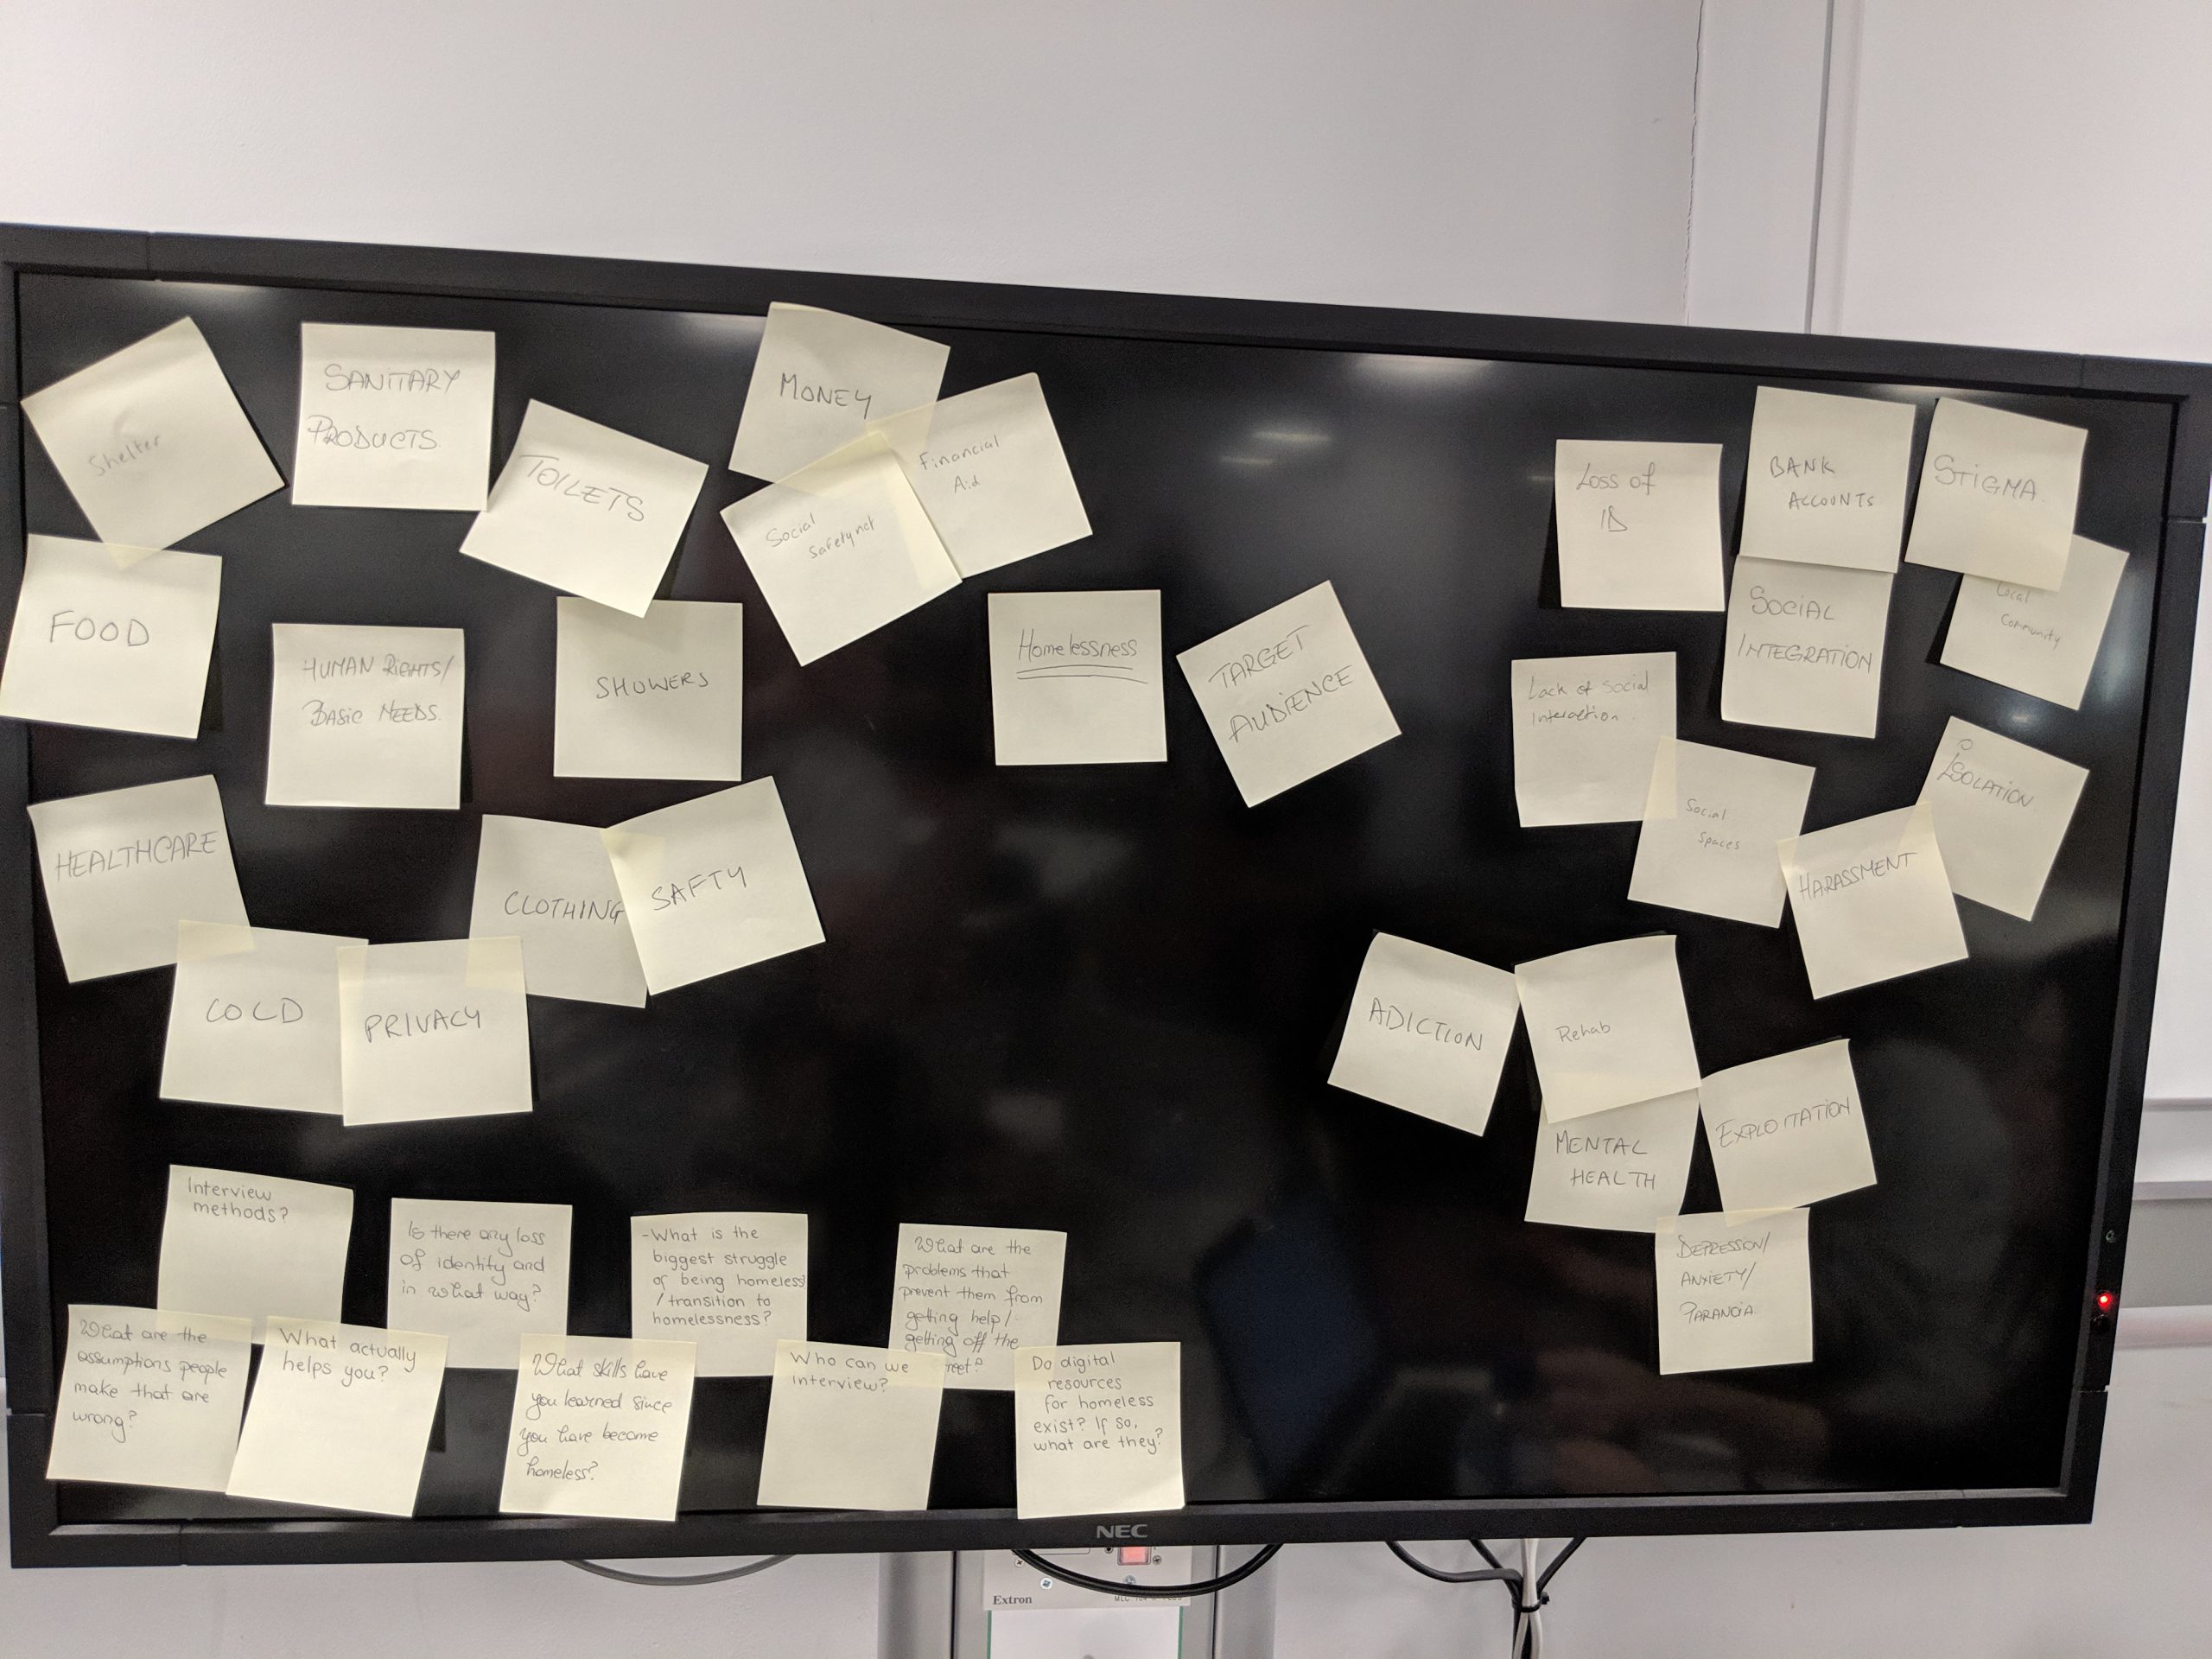 Shelter
SANITARY
PRODUCTS
TOILETS
MONEY
Financial
Aid
Social
Safetynet
FOOD
HUMAN RIGHTS/
BASIC NEEDS
SHOWERS
HEALTHCARE
CLOTHING
SAFTY
COLD
PRIVACY
Homelessness
TARGET
AUDIENCE
Loss of
ID
BANK
ACCOUNTS
STIGMA
Local
Community
SOCIAL
INTEGRATION
Lack of social
interaction
Social
Spaces
ISOLATION
HARASSMENT
ADICTION
Rehab
MENTAL
HEALTH
EXPLOITATION
DEPRESSION/
ANXIETY/
PARANOIA
Interview
methods?
Is there any loss
of identity and
in what way?
-What is the
biggest struggle
of being homeless
/transition to
homelessness?
What are the
problems that
prevent them from
getting help/
getting off the
What are the
assumptions people
make that are
wrong?
What actually
helps you?
What skills have
you learned since
you have become
homeless?
Who can we
interview?
Do digital
resources
for homeless
exist? If so,
what are they?
NEC
Extron